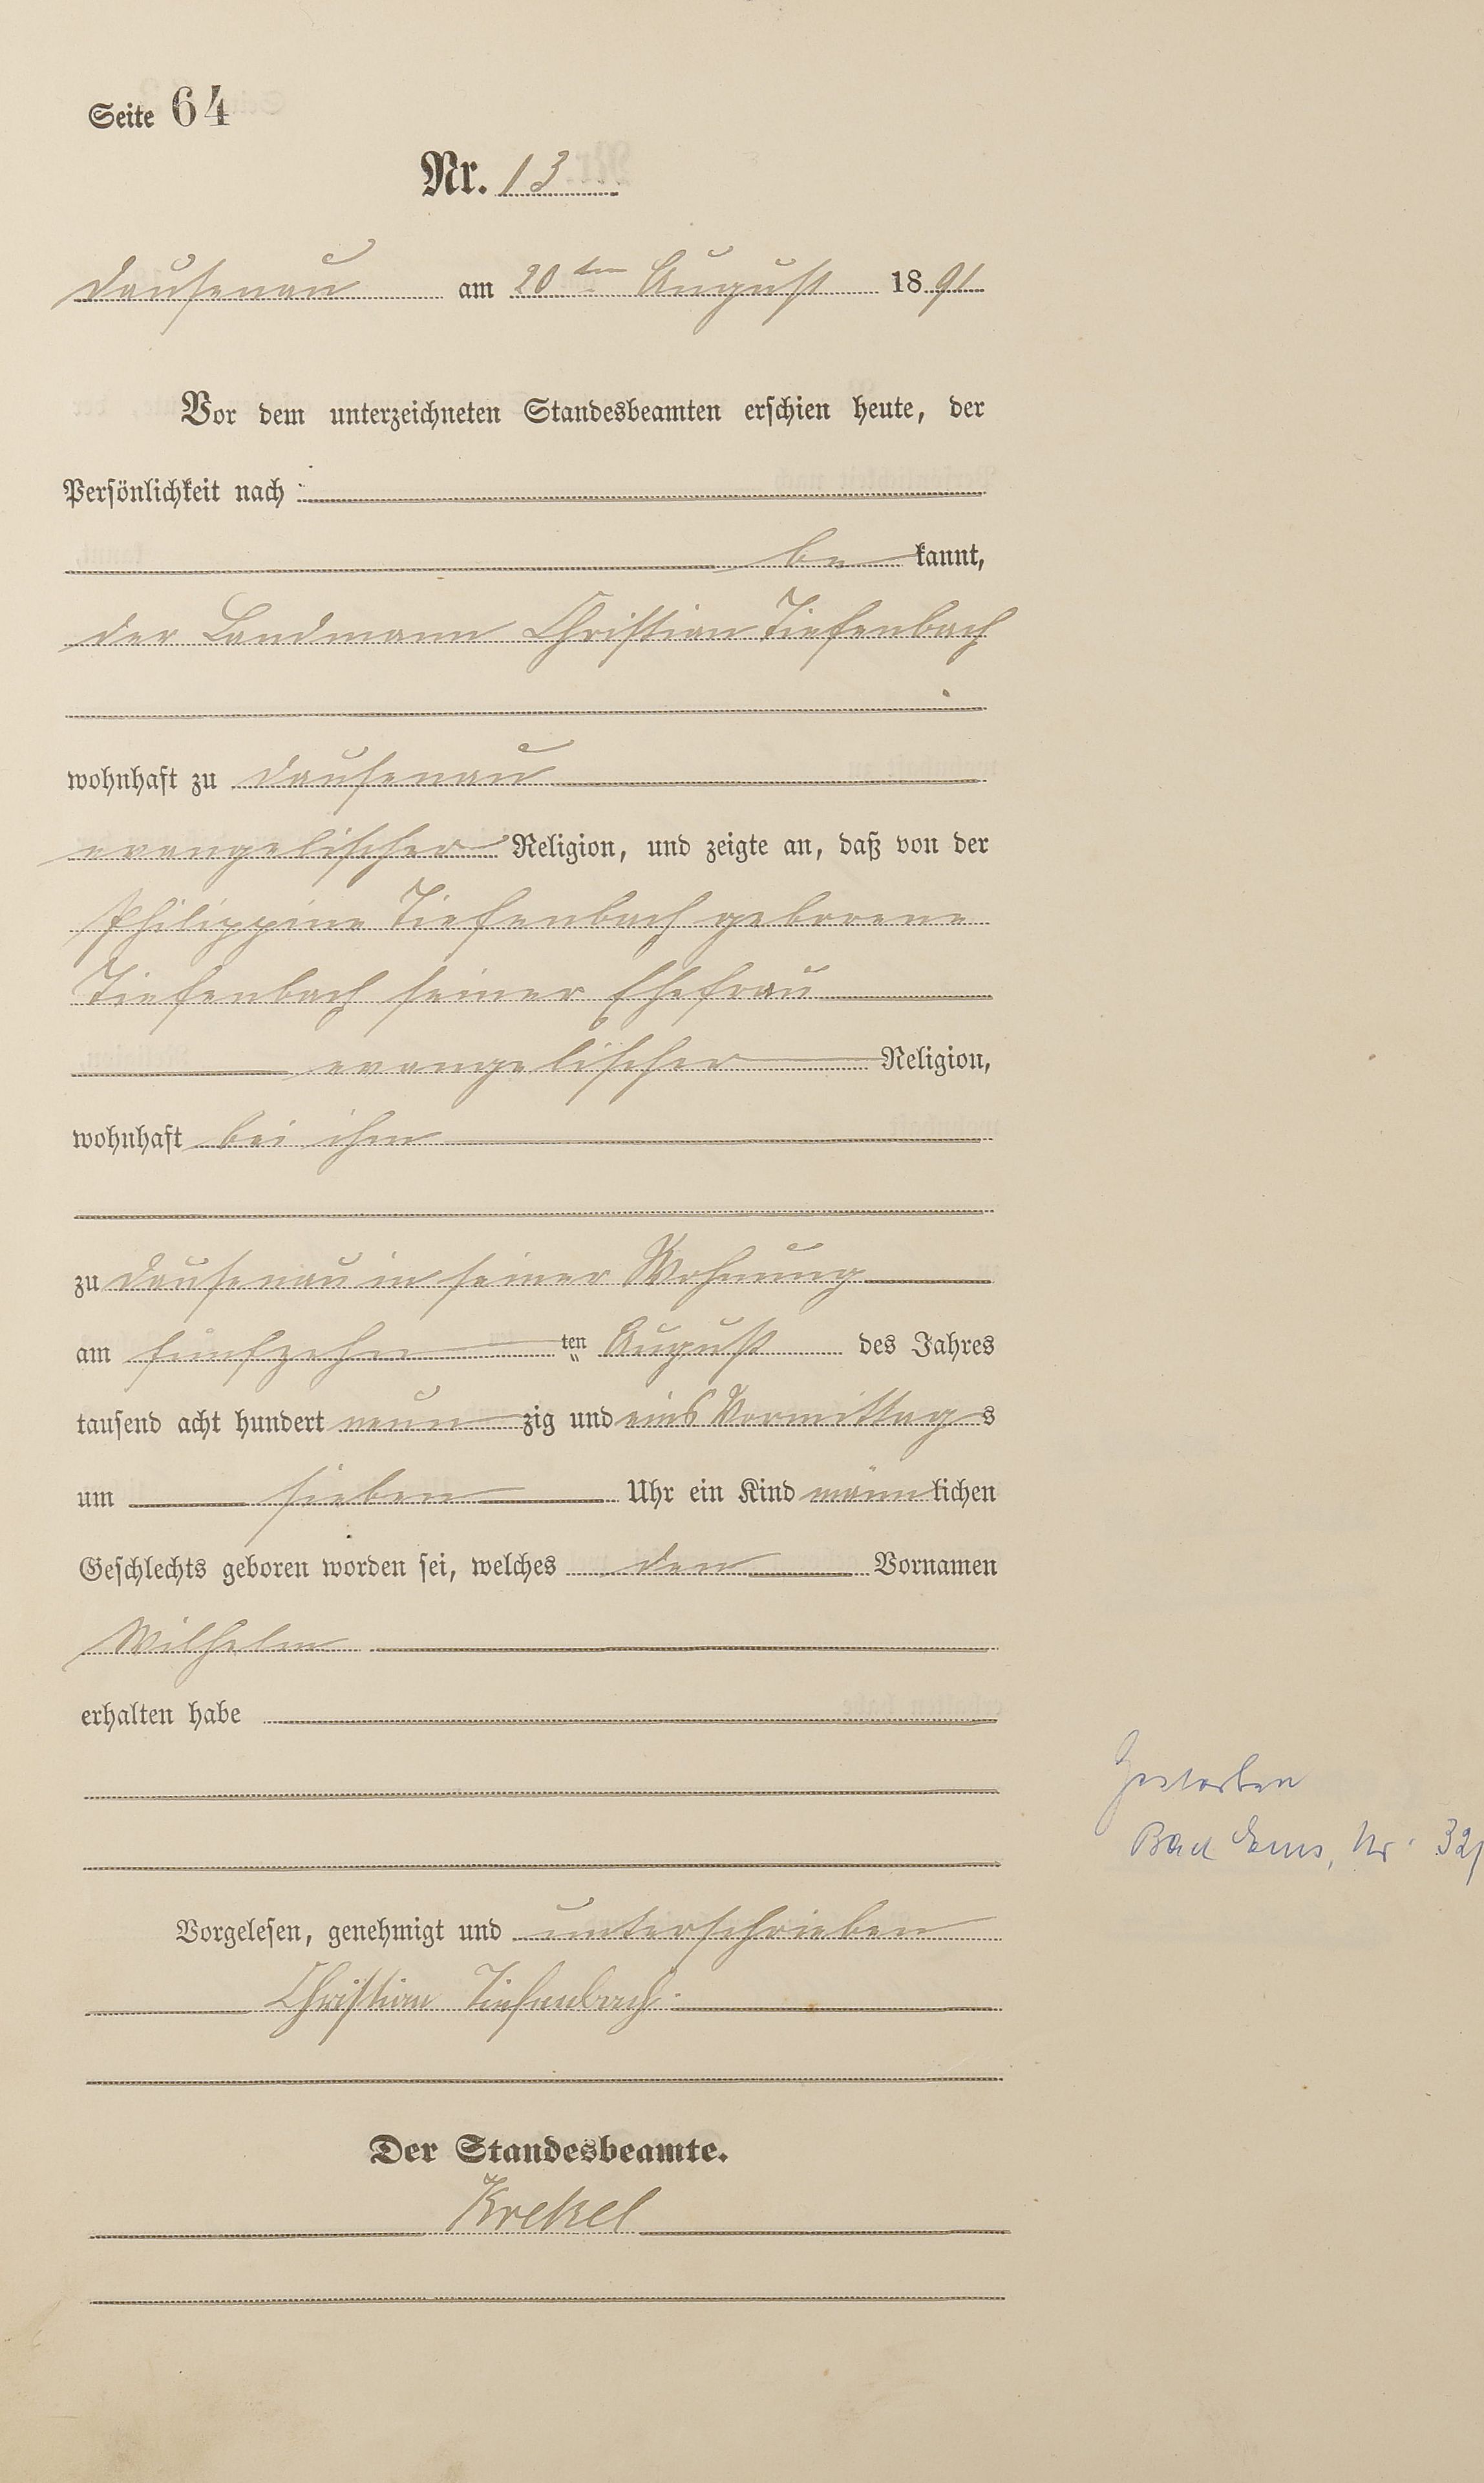 Seite 64
Nr. 13
Dausenau am 20ten August 1891
Vor dem unterzeichneten Standesbeamten erschien heute, der
Persönlichkeit nach
be kannt,
der Landmann Christian Tiefenbach
wohnhaft zu Dausenau
evangelischer Religion, und zeigte an, daß von der
Philippine Tiefenbach geborene
Tiefenbach seiner Ehefrau
evangelischer Religion,
wohnhaft bei ihm
zu Dausenau in seiner Wohnung
am fünfzehn ten August des Jahres
tausend acht hundert neun zig und eins Vormittags
um sieben Uhr ein Kind männlichen
Geschlechts geboren worden sei, welches den Vornamen
Wilhelm
erhalten habe
Gestorben
Bad Ems, Nr.
Vorgelesen, genehmigt und unterschrieben
Christian Tiefenbach.
Der Standesbeamte.
Krekel